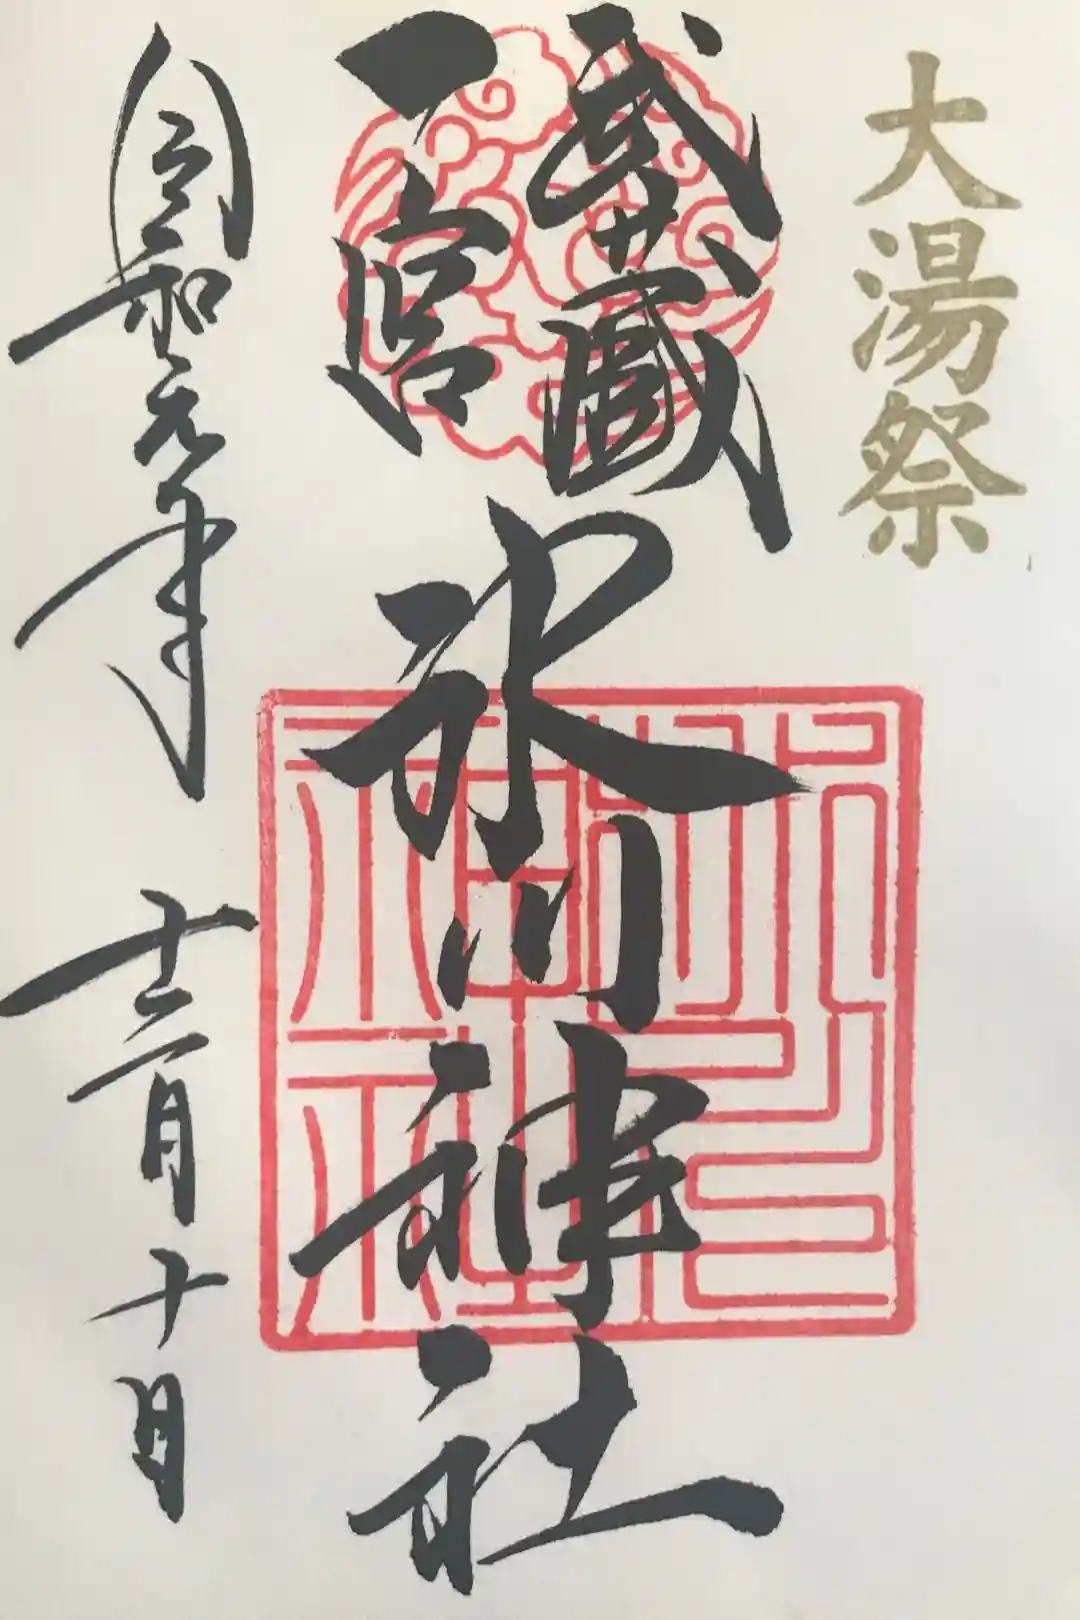 大湯祭
武蔵
一宮
氷川神社
令和元年十二月十日
氷川
神社